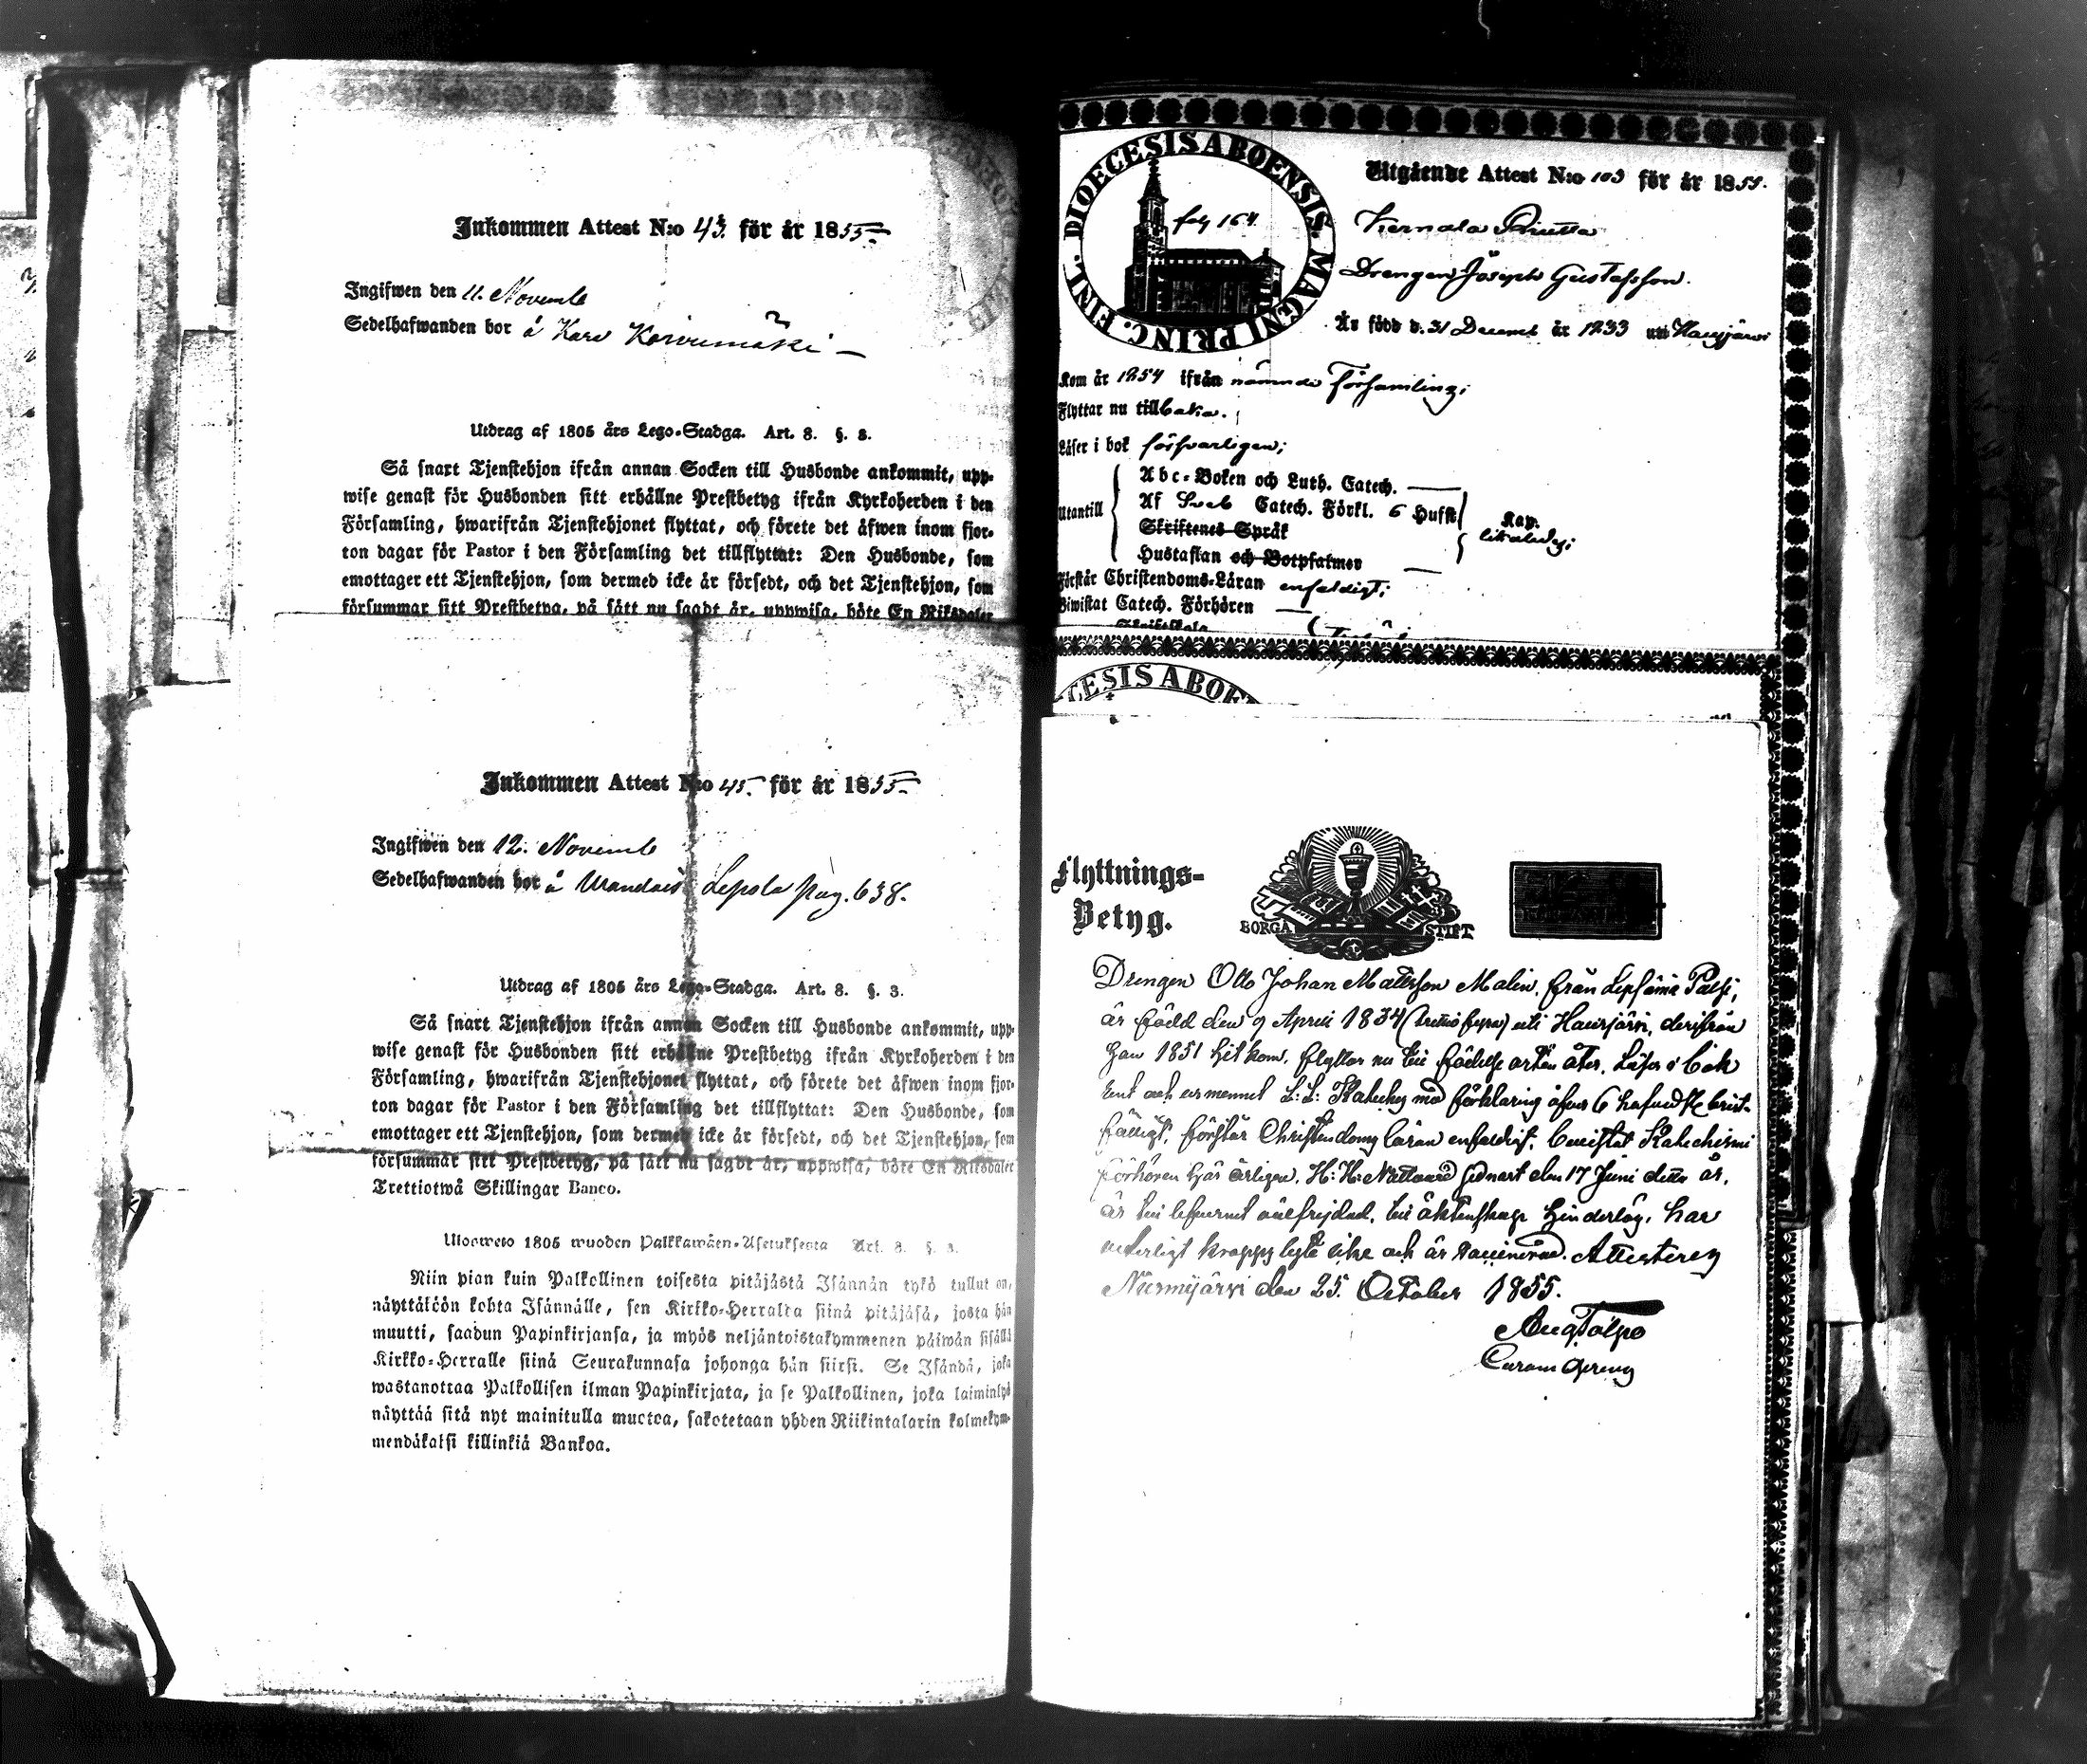 Inkommen Attest N:o 43. för år 1855.
Ingifwen den 11. Novemb
Sedelhafwanden bor å Karo Korvumäki
Utdrag af 1805 års Lego-Stadga. Art. 8. §. 3.
Så snart Tjenstehjon ifrån annan Socken till Husbonde ankommit, upp-
wise genast för Husbonden sitt erhållne Prestbetyg ifrån Kyrkoherden i den
Församling, hwarifrån Tjenstehjonet flyttat, och förete det äfwen inom fjor-
ton dagar för Pastor i den Församling det tillflyttat: Den Husbonde, som
emottager ett Tjenstehjon, som dermed icke är försedt, och det Tjenstehjon, som
försummar sitt Prestbetyg, på sätt nu sagdt är, uppwisa, böte En Riksdaler
Inkommen Attest N:o 45. för år 1855.
Ingifwen den 12. Novemb
Sedelhafwanden bor å Lepola pag. 638.
Utdrag af 1805 års Lego-Stadga. Art. 8. §. 3.
Så snart Tjenstehjon ifrån annan Socken till Husbonde ankommit, upp-
wise genast för Husbonden sitt erhållne Prestbetyg ifrån Kyrkoherden i den
Församling, hwarifrån Tjenstehjonet flyttat, och förete det äfwen inom fjor-
ton dagar för Pastor i den Församling det tillflyttat: Den Husbonde, som
emottager ett Tjenstehjon, som dermed icke är försedt, och det Tjenstehjon, som
försummar sitt Prestbetyg, på sätt nu sagdt är, uppwisa, böte En Riksdaler
Trettiotwå Skillingar Banco.
Ulosweto 1805 wuoden Palkkawäen-Asetuksesta Art. 8. §. 3.
Niin pian kuin Palkollinen toisesta pitäjästä Isännän tykö tullut on,
näyttäköön kohta Isännälle, sen Kirkko-Herralda siinä pitäjäsä, josta hän
muutti, saadun Papinkirjansa, ja myös neljäntoistakymmenen päiwän sisällä
Kirkko-Herralle siinä Seurakunnasa johonga hän siirsi. Se Isändä, joka
wastanottaa Palkollisen ilman Papinkirjata, ja se Palkollinen, joka laiminlyö
näyttää sitä nyt mainitulla muotoa, sakotetaan yhden Riikintalarin kolmekym-
mendäkaksi killinkiä Bankoa.
DIOECESIS ABOENSIS. MAGNI PRINC. FINL.
fol 164
Utgående Attest N:o 103 för år 1855.
Kernala
Drengen Joseph Gustafsson.
Är född d. 31 Decemb år 1833 uti Hausjärvi
Kom år 1854 ifrån nämnde Församling;
Flyttar nu tillbaka.
Läser i bok försvarligen;
Utantill
Abc-Boken och Luth. Catech. —
Af Sveb Catech. Förkl. 6 Hufst
Skriftenes Språk
Hustaflan och Botpsalmer —
Förstår Christendoms-Läran enfaldigt;
Biwistat Catech. Förhören —
CESIS ABOE
Flyttnings-
Betyg.
BORGÅ STIFT
Drengen Otto Johan Mattsson Malin, från Lepsämä
är född den 9 April 1834 uti Hausjärvi, derifrån
han 1851 hit kom, flyttar nu till födelse orten åter. Läser i bok
rent och utur minnet L: L: Kateches med förklaring öfver 6 hufvudst. brist-
fälligt, förstår Christendoms läran enfaldigt, bevistat Katechismi
förhören här årligen, H: H: Nattvard sednast den 17 Juni detta år,
är till lefvernet välfrejdad, till äktenskap hinderlös, har
kropps lyte icke och är vaccinerad. Attesterer
Nurmijärvi den 25. October 1855.